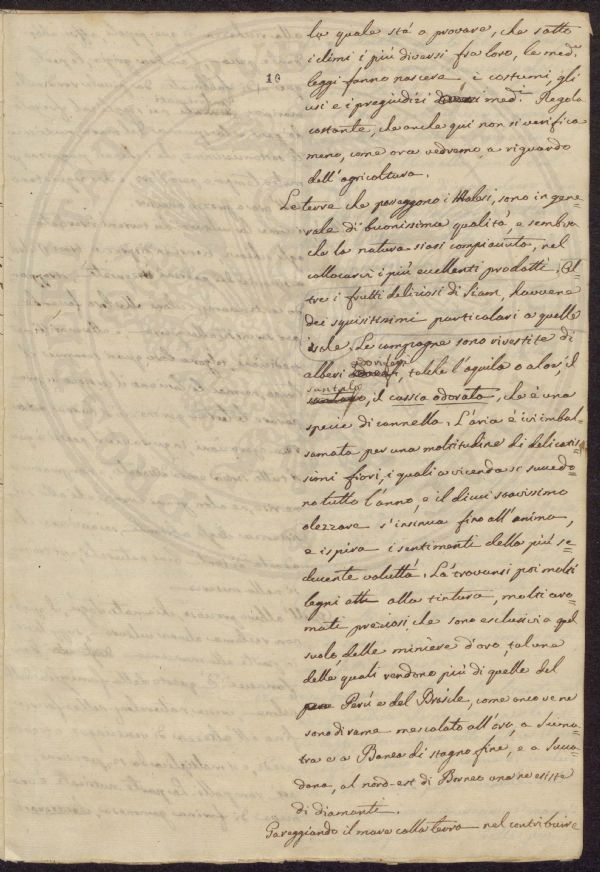 la quale stà a provare, che sotto
i climi i più diversi fra loro, le med.e
leggi fanno nascere i costumi, gli
10
usi e i pregiudizi med.i Regola
costante, che anche qui non si verifica
meno, come ora vedremo, a riguardo
dell'agricoltura.
Le terre che posseggono i Malesi, sono in gene=
rale di buonissima qualità, e sembra
che la natura siasi compiaciuta, nel
collocarvi i più eccellenti prodotti. Ol=
tre i frutti deliziosi di Siam, havvene
dei squisitissimi particolari a quelle
isole. Le campagne sono rivestite di
odoriferi
alberi, talchè l'aquila o aloe, il
santalo
il cassia odorata, che è una
specie di cannella. L'aria è ivi imbal=
samata per una moltitudine di delicatis=
simi fiori, i quali a vicenda si succedo=
no tutto l'anno, e il di cui soavissimo
olezzare s'insinua fino all'anima,
e ispira i sentimenti della più se=
ducente voluttà. Là trovansi poi molti
legni atti alla tintura, molti aro=
mati preziosi, che sono esclusivi a quel
suolo, delle miniere d'oro, taluna
delle quali rendono più di quelle del
Perù e del Brasile, come anco ve ne
sono di rame mescolato all'oro, a Suma=
tra e a Banca di stagno fine, e a Succa=
dana, al nord-est di Borneo una ne esiste
di diamanti.
Gareggiando il mare colla terra nel contribuire